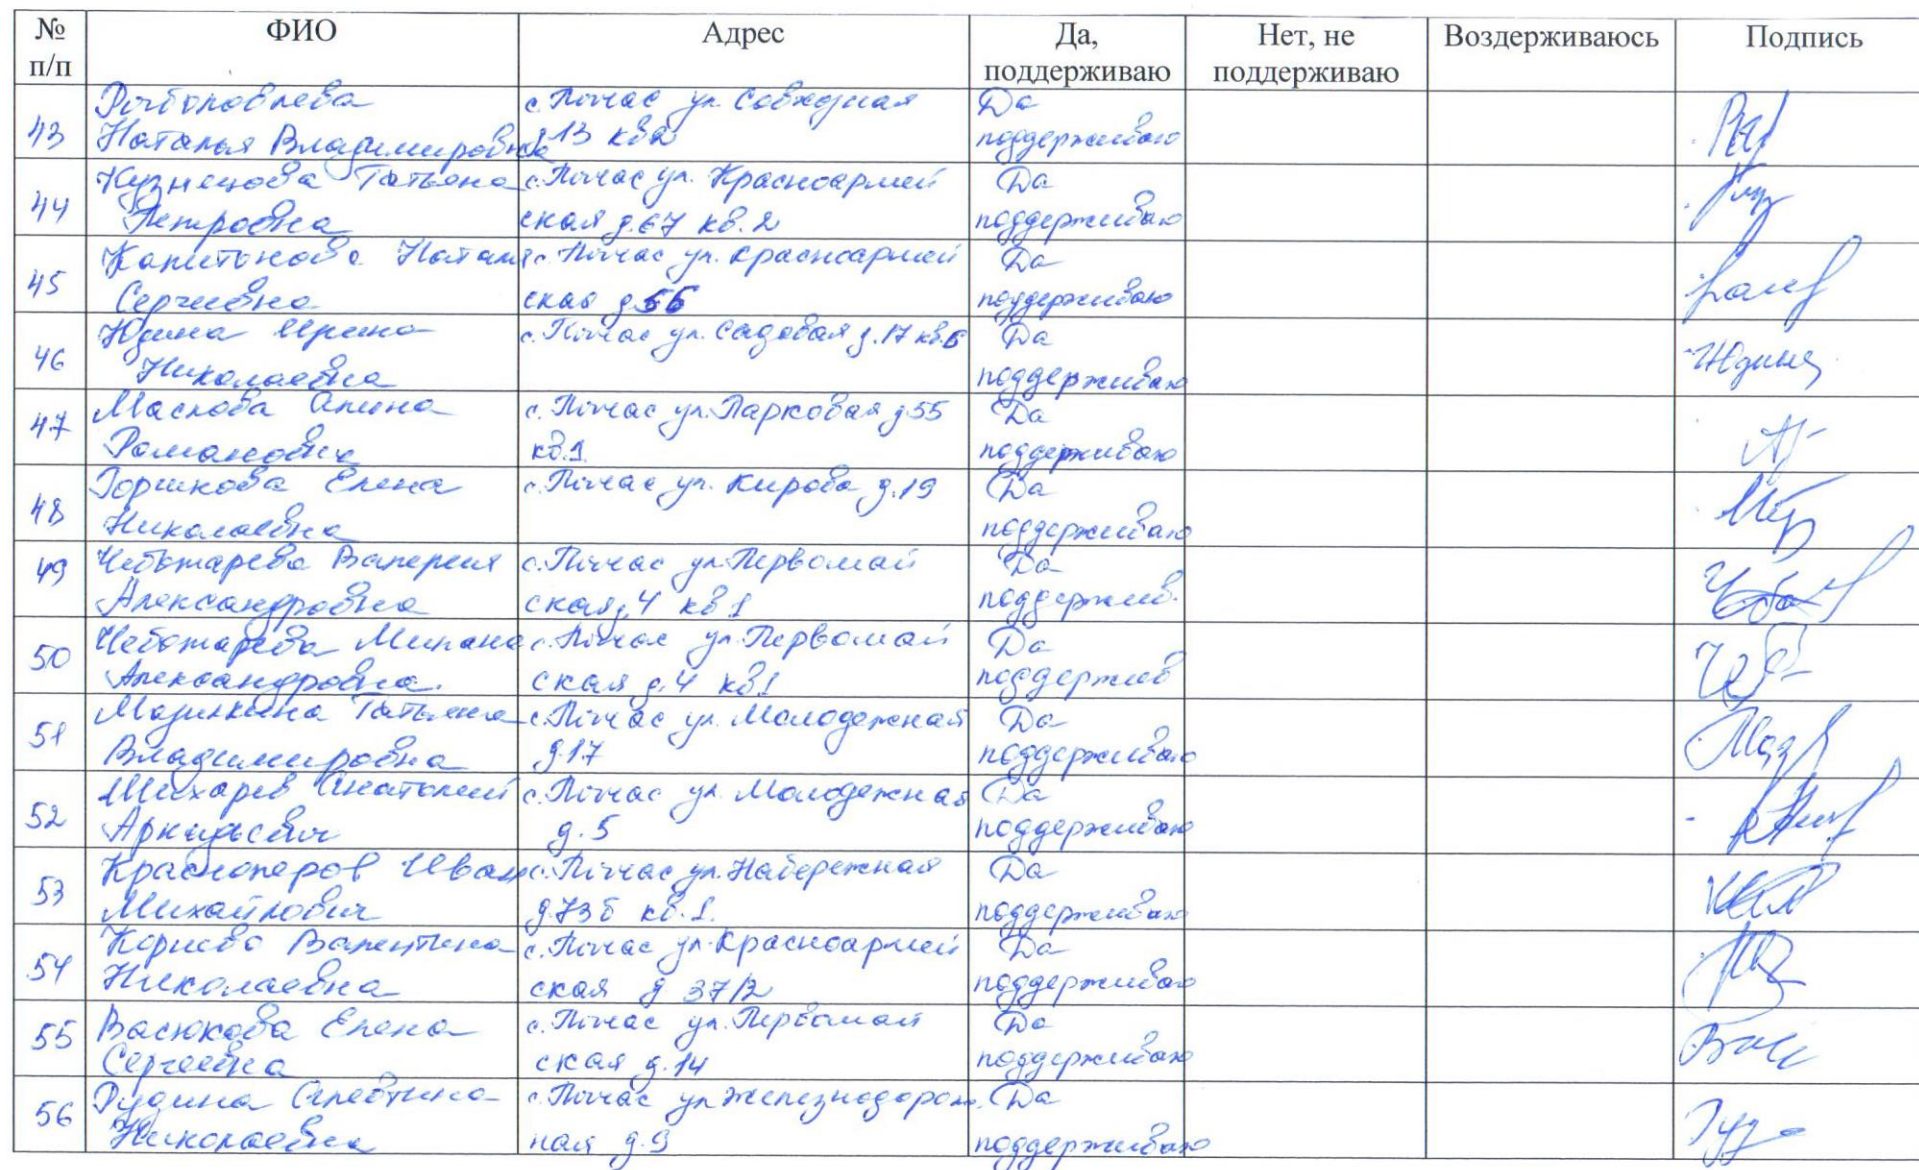 № п/п ФИО Адрес Да, поддерживаю Нет, не поддерживаю Воздерживаюсь Подпись
43 Наталья Владимировна с. Пычас ул. Совхозная д.13 кв2 Да поддерживаю
44 Кузнецова Татьяна Петровна с. Пычас ул. Красноармейская д.67 кв.2 Да поддерживаю
45 Капитонова Наталья Сергеевна с. Пычас ул. Красноармейская д.56 Да поддерживаю
46 Юдина Ирина Николаевна с. Пычас ул. Садовая д.17 кв.6 Да поддерживаю Юдина
47 Маслова Алина Романовна с. Пычас ул. Парковая д.55 кв.1. Да поддерживаю
48 Горшкова Елена Николаевна с. Пычас ул. Кирова д.19 Да поддерживаю
49 Чеботарева Валерия Александровна с. Пычас ул. Первомайская, 4 кв 1 Да поддержив.
50 Чеботарева Милана Александровна. с. Пычас ул. Первомайская д.4 кв1 Да поддержив
51 Татьяна Владимировна с. Пычас ул. Молодежная д.17 Да поддерживаю
52 Анатолий Аркадьевич с. Пычас ул. Молодежная д.5 Да поддерживаю
53 Красноперов Иван Михайлович с. Пычас ул. Набережная д.73б кв.1. Да поддерживаю
54 Валентина Николаевна с. Пычас ул. Красноармейская д 37/2 Да поддерживаю
55 Васюкова Елена Сергеевна с. Пычас ул. Первомайская д.14 Да поддерживаю
56 Алевтина Николаевна с. Пычас ул Железнодорожная д.9 Да поддерживаю